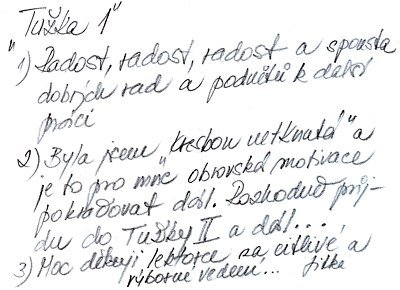 "Tužka 1"
1) Radost, radost, radost a spousta
dobrých rad a podnětů k další
práci
2) Byla jsem "kresbou netknutá" a
je to pro mne obrovská motivace
pokračovat dál. Rozhodně přij-
du do Tužky II a dál...
3) Moc děkuji lektorce za citlivé a
výborné vedení... Jitka